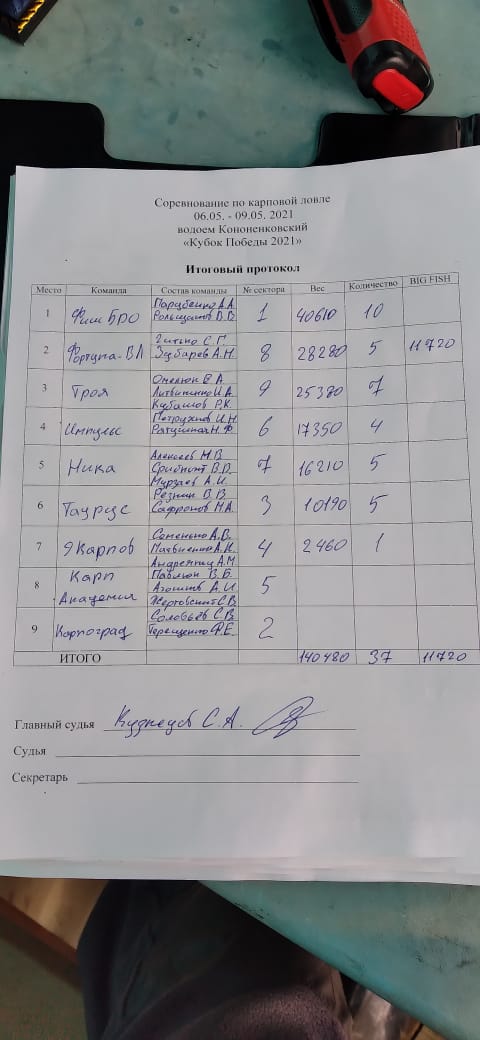 Соревнование по карповой ловле
06.05. - 09.05. 2021
водоем Кононенковский
«Кубок Победы 2021»
Итоговый протокол
Место Команда Состав команды № сектора Вес Количество BIG FISH
1 Фиш БРО 1 40610 10
2 Фортуна-ВЛ Зубарев А.Н. 8 28280 5 11720
3 Троя Литвиненко И.А. 9 25380 7
4 Импульс Петрухнов И.Н. 6 17350 4
5 Ника Алексеев М.В. 7 16210 5
Мурзаев А.И.
6 Таурус Резник В.В. 3 10190 5
Сафронов М.А.
7 9 Карпов Семенько А.В. 4 2460 1
Матвиенко А.И.
8 Карп Павлюк В.Б. 5
Академия Агошков А.И.
Жертовский С.В.
9 Карпоград Соловьёв С.В. 2
Терещенко Ф.Е.
ИТОГО 140480 37 11720
Главный судья Кузнецов С.А.
Судья
Секретарь